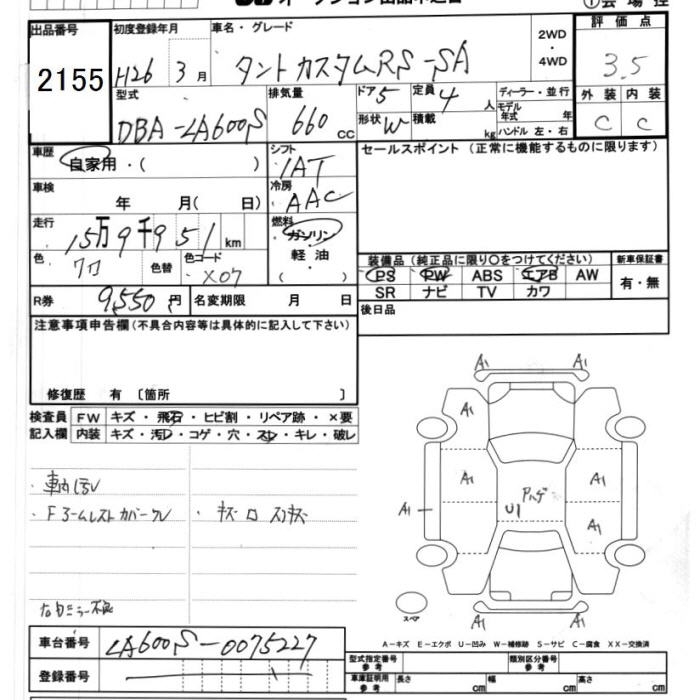 出品番号 初度登録年月 車名・グレード 評価点
2155 H26 3月 タントカスタムRS-SA 2WD・4WD 3.5
型式 排気量 ドア 5 定員 4人 ディーラー・並行 外装 内装
DBA-LA600S 660cc 形状 W 積載 kg モデル年式 年 C C
ハンドル 左・右
車歴 シフト セールスポイント (正常に機能するものに限ります)
自家用・( ) IAT
車検 冷房
年 月( 日) AAC
走行 燃料
15万9千951km ガソリン・軽油・( )
色 色替 色コード 装備品 (純正品に限り○をつけてください) 新車保証書
X07 PS PW ABS エアB AW 有・無
SR ナビ TV カワ
R券 9,550円 名変期限 月 日 後日品
注意事項申告欄 (不具合内容等は具体的に記入して下さい)
修復歴 有 〔箇所 〕
検査員 FW キズ・飛石・ヒビ割・リペア跡・×要
記入欄 内装 キズ・汚レ・コゲ・穴・スレ・キレ・破レ
A1 A1
A1
・車内汚レ
A1 A1
・キズ
U1
A1
A1
スペア A1 A1
A-キズ E-エクボ U-凹み W-補修跡 S-サビ C-腐食 XX-交換済
車台番号 LA600S-0075227
型式指定番号 参考 類別区分番号 参考
登録番号
車庫証明用 参考 長さ cm 幅 cm 高さ cm